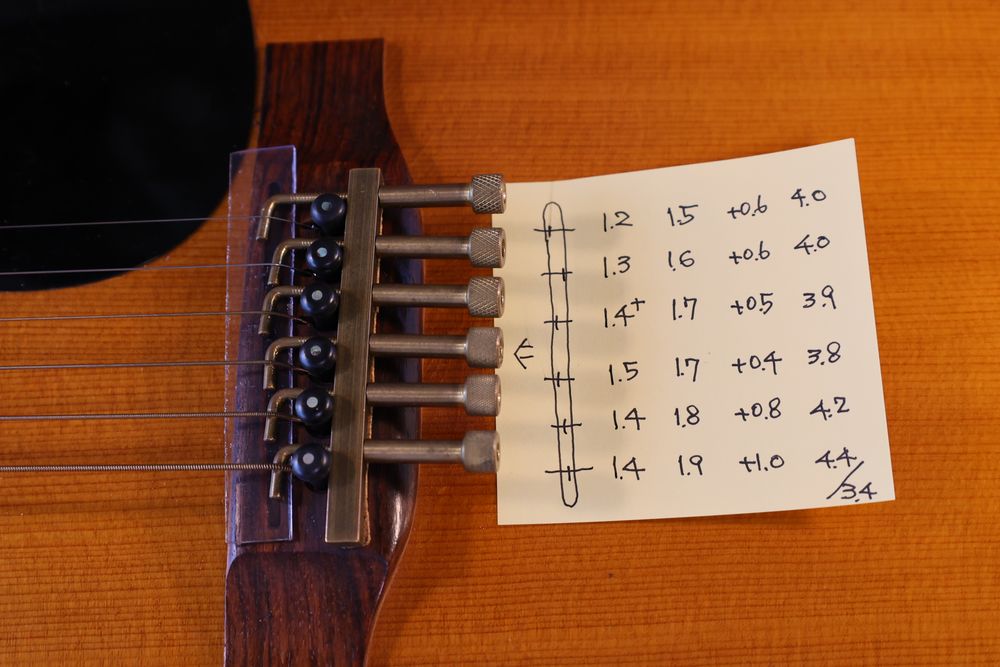 1.2 1.5 +0.6 4.0
1.3 1.6 +0.6 4.0
1.4+ 1.7 +0.5 3.9
1.5 1.7 +0.4 3.8
1.4 1.8 +0.8 4.2
1.4 1.9 +1.0 4.4/3.4